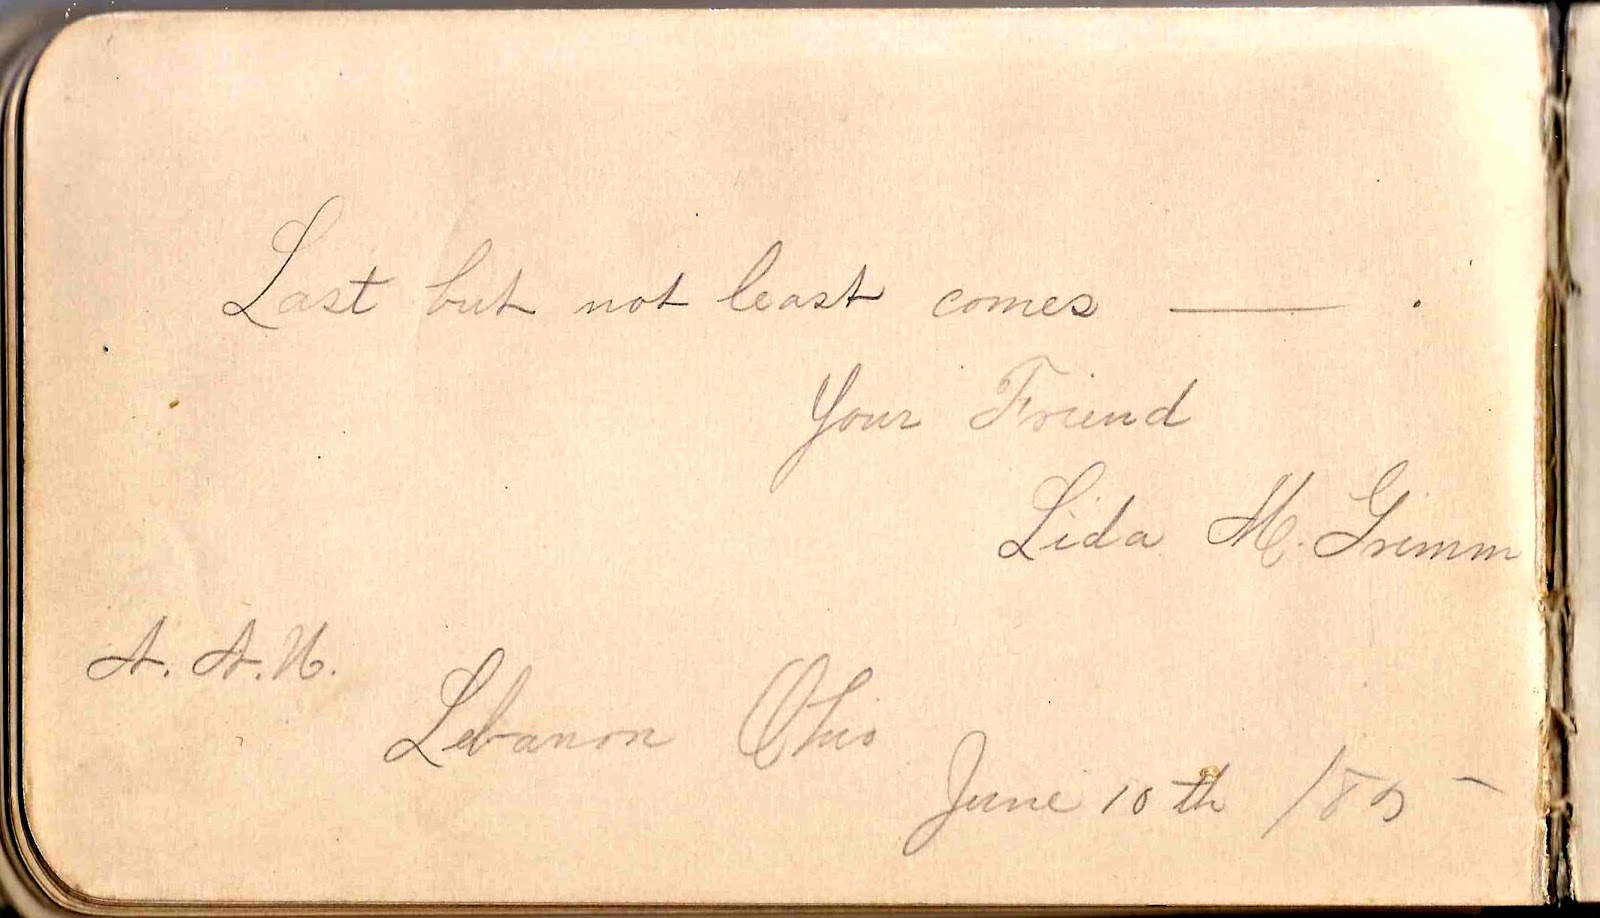 Last but not least comes ——— .
Your Friend
Lida M. Grimm
A. A. N.
Lebanon Ohio
June 10th /85